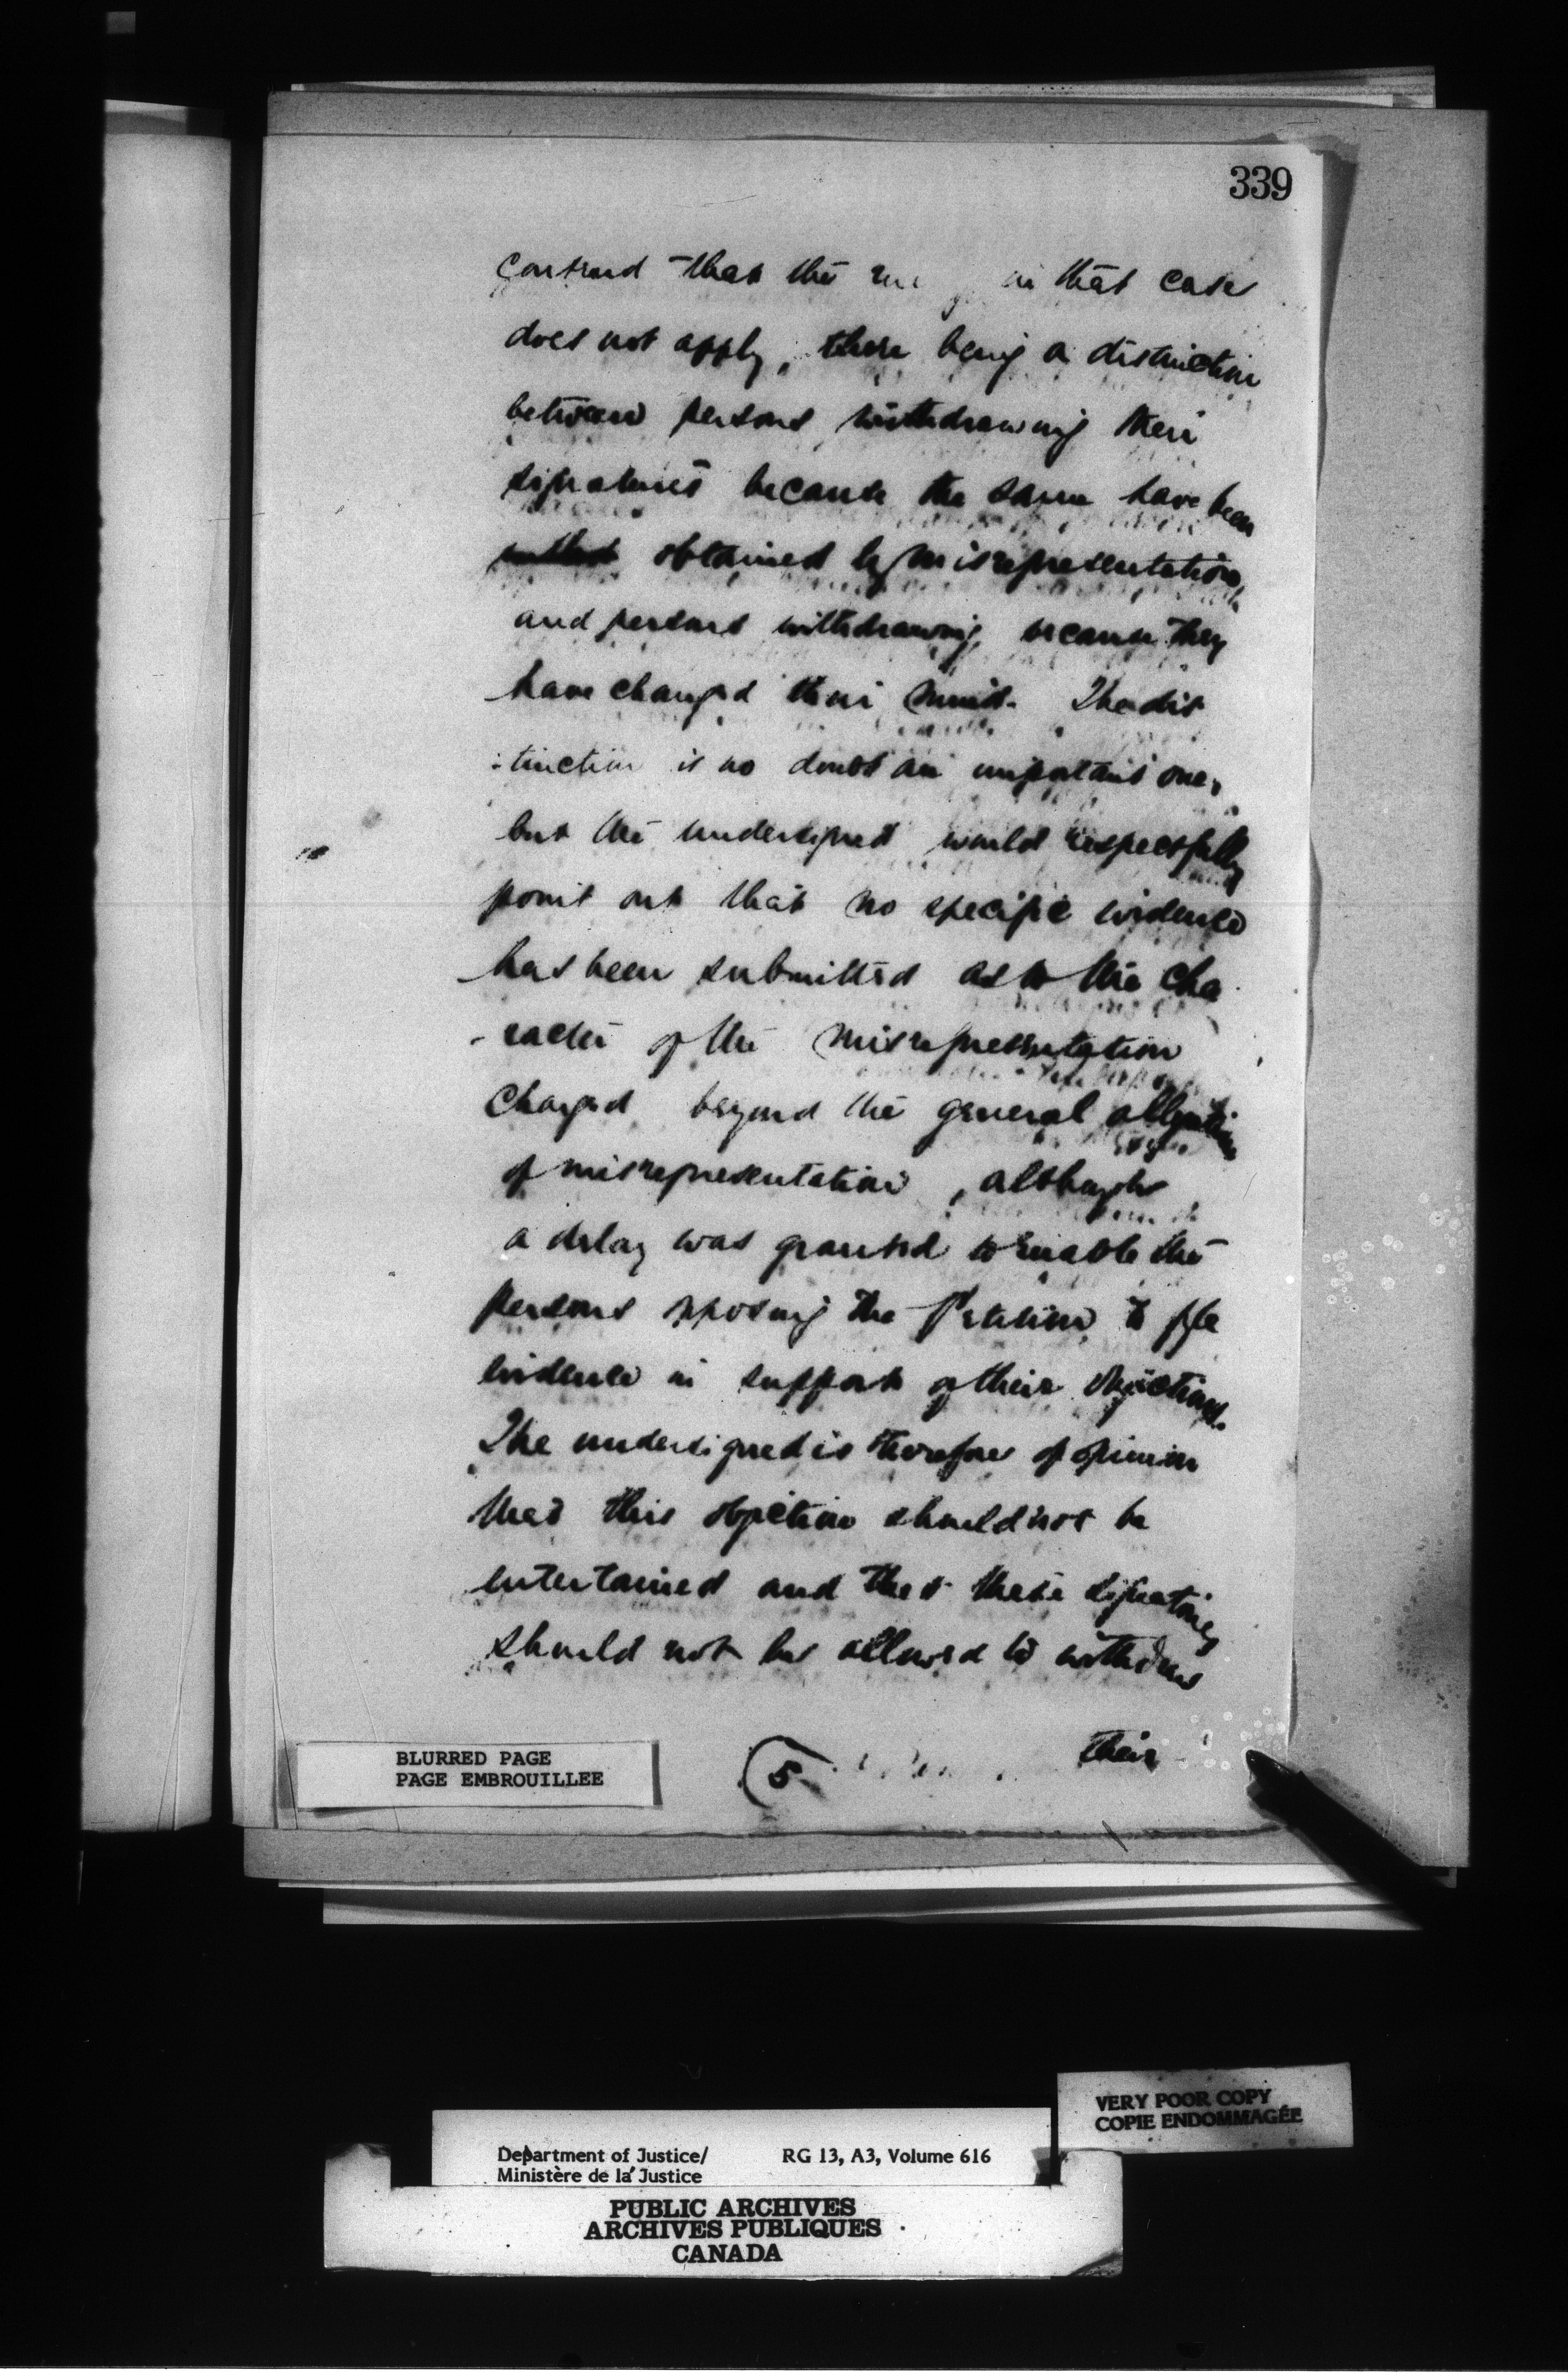 339
contend that the in that case
does not apply, there being a distinction
between persons withdrawing their
signatures because the same have been
obtained by misrepresentation
and persons withdrawing because they
have changed their mind. The dis
:tinction is no doubt an important one,
but the undersigned would respectfully
point out that no specific evidence
has been submitted as to the cha
-racter of the misrepresentation
charged beyond the general allegation
of misrepresentation, although
a delay was granted to enable the
persons opposing the Petition to file
evidence in support of their objections.
The undersigned is therefore of opinion
that this objection should not be
entertained and that these signatories
should not be allowed to withdraw
their
5
BLURRED PAGE
PAGE EMBROUILLEE
VERY POOR COPY
COPIE ENDOMMAGÉE
Department of Justice/ RG 13, A3, Volume 616
Ministère de la Justice
PUBLIC ARCHIVES
ARCHIVES PUBLIQUES
CANADA